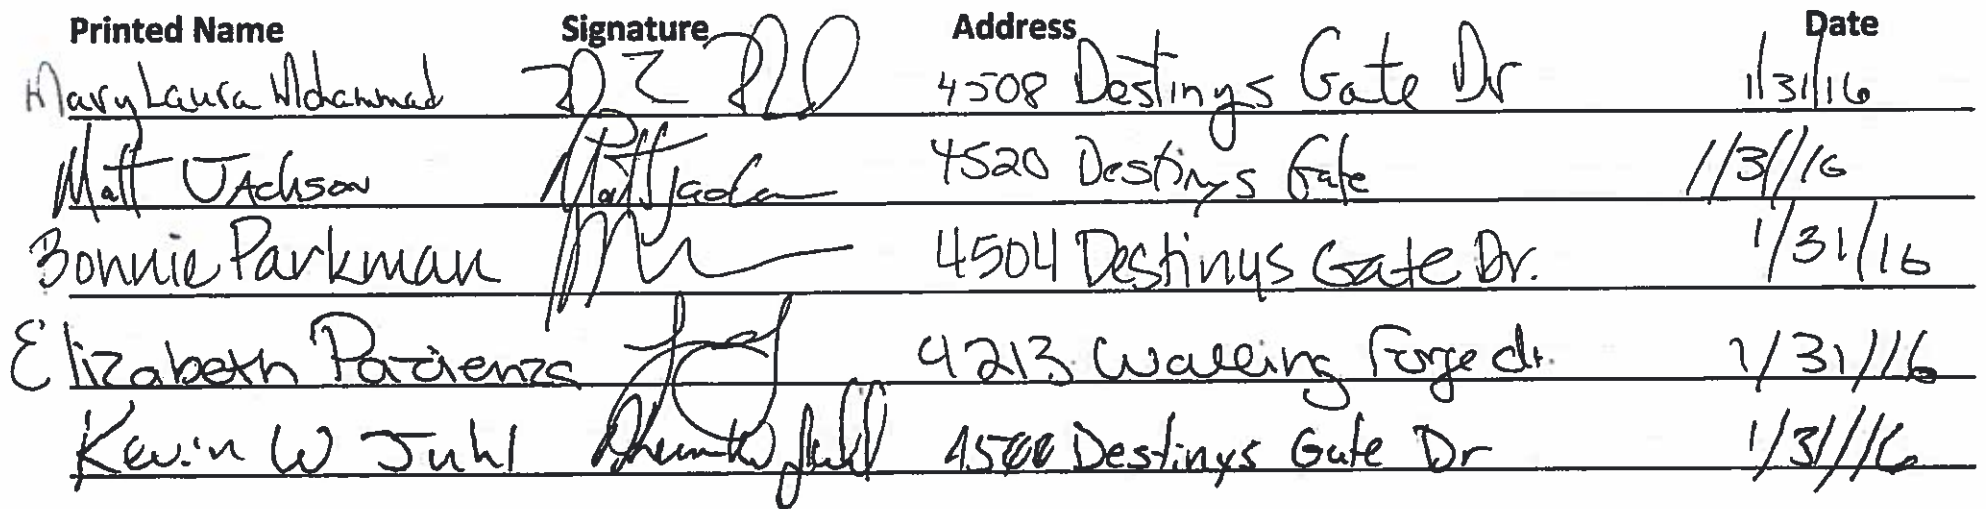 Printed Name Signature Address Date
Mary Laura Mohammad 4508 Destinys Gate Dr 1/31/16
Matt Jackson Matt Jackson 4520 Destinys Gate 1/31/16
Bonnie Parkman 4504 Destinys Gate Dr. 1/31/16
Elizabeth Pazienza 4213 Walling Forge dr. 1/31/16
Kevin W Juhl Kevin W Juhl Destinys Gate Dr 1/31/16